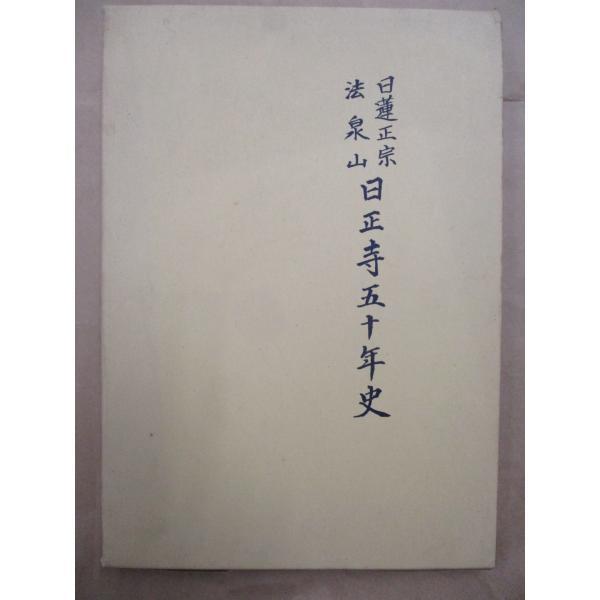 日蓮正宗
法泉山
日正寺五十年史